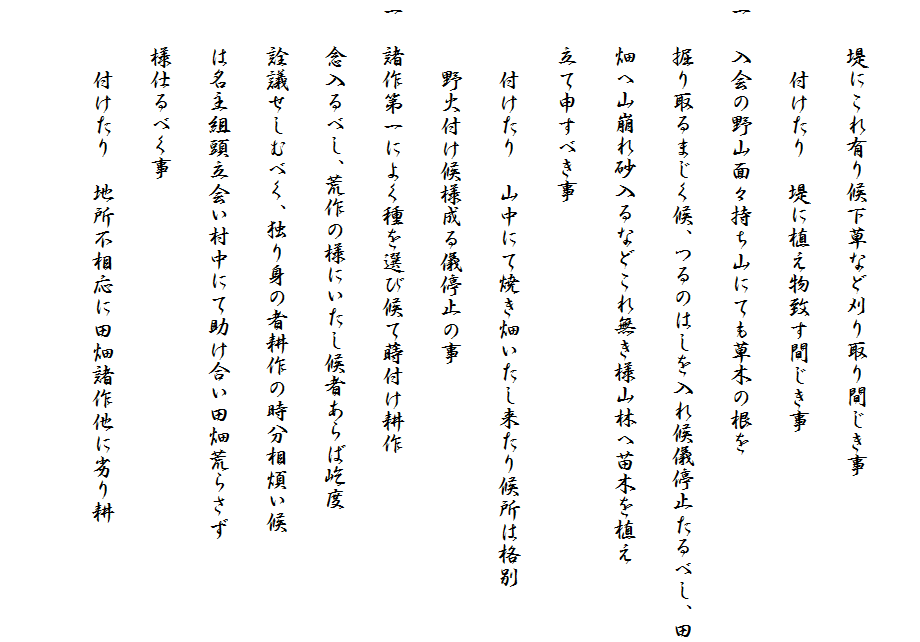 堤にこれ有り候下草など刈り取り間じき事
付けたり　堤に植え物致す間じき事
一　入会の野山面々持ち山にても草木の根を
掘り取るまじく候、つるのはしを入れ候儀停止たるべし、田
畑へ山崩れ砂入るなどこれ無き様山林へ苗木を植え
立て申すべき事
付けたり　山中にて焼き畑いたし来たり候所は格別
野火付け候様成る儀停止の事
一　諸作第一によく種を選び候て蒔付け耕作
念入るべし、荒作の様にいたし候者あらば屹度
詮議せしむべく、独り身の者耕作の時分相煩い候
は名主組頭立会い村中にて助け合い田畑荒らさず
様仕るべく事
付けたり　地所不相応に田畑諸作他に劣り耕